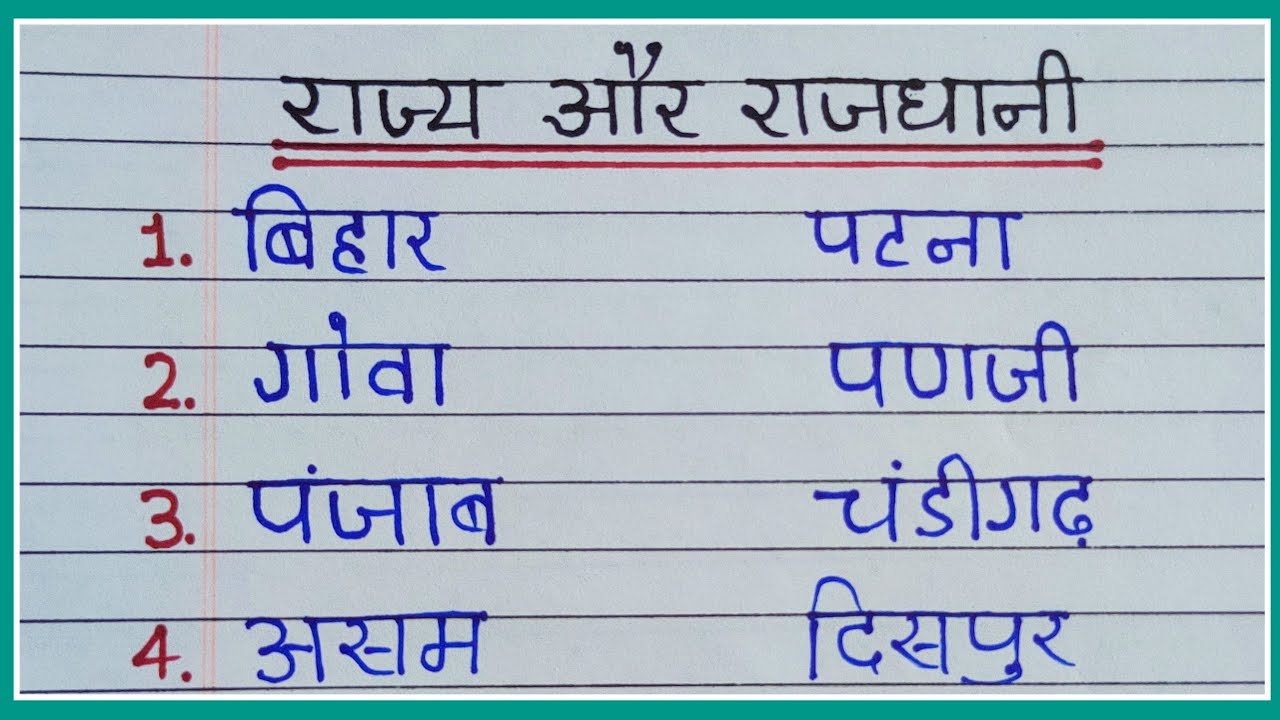 राज्य और राजधानी
1. बिहार पटना
2. गोवा पणजी
3. पंजाब चंडीगढ़
4. असम दिसपुर